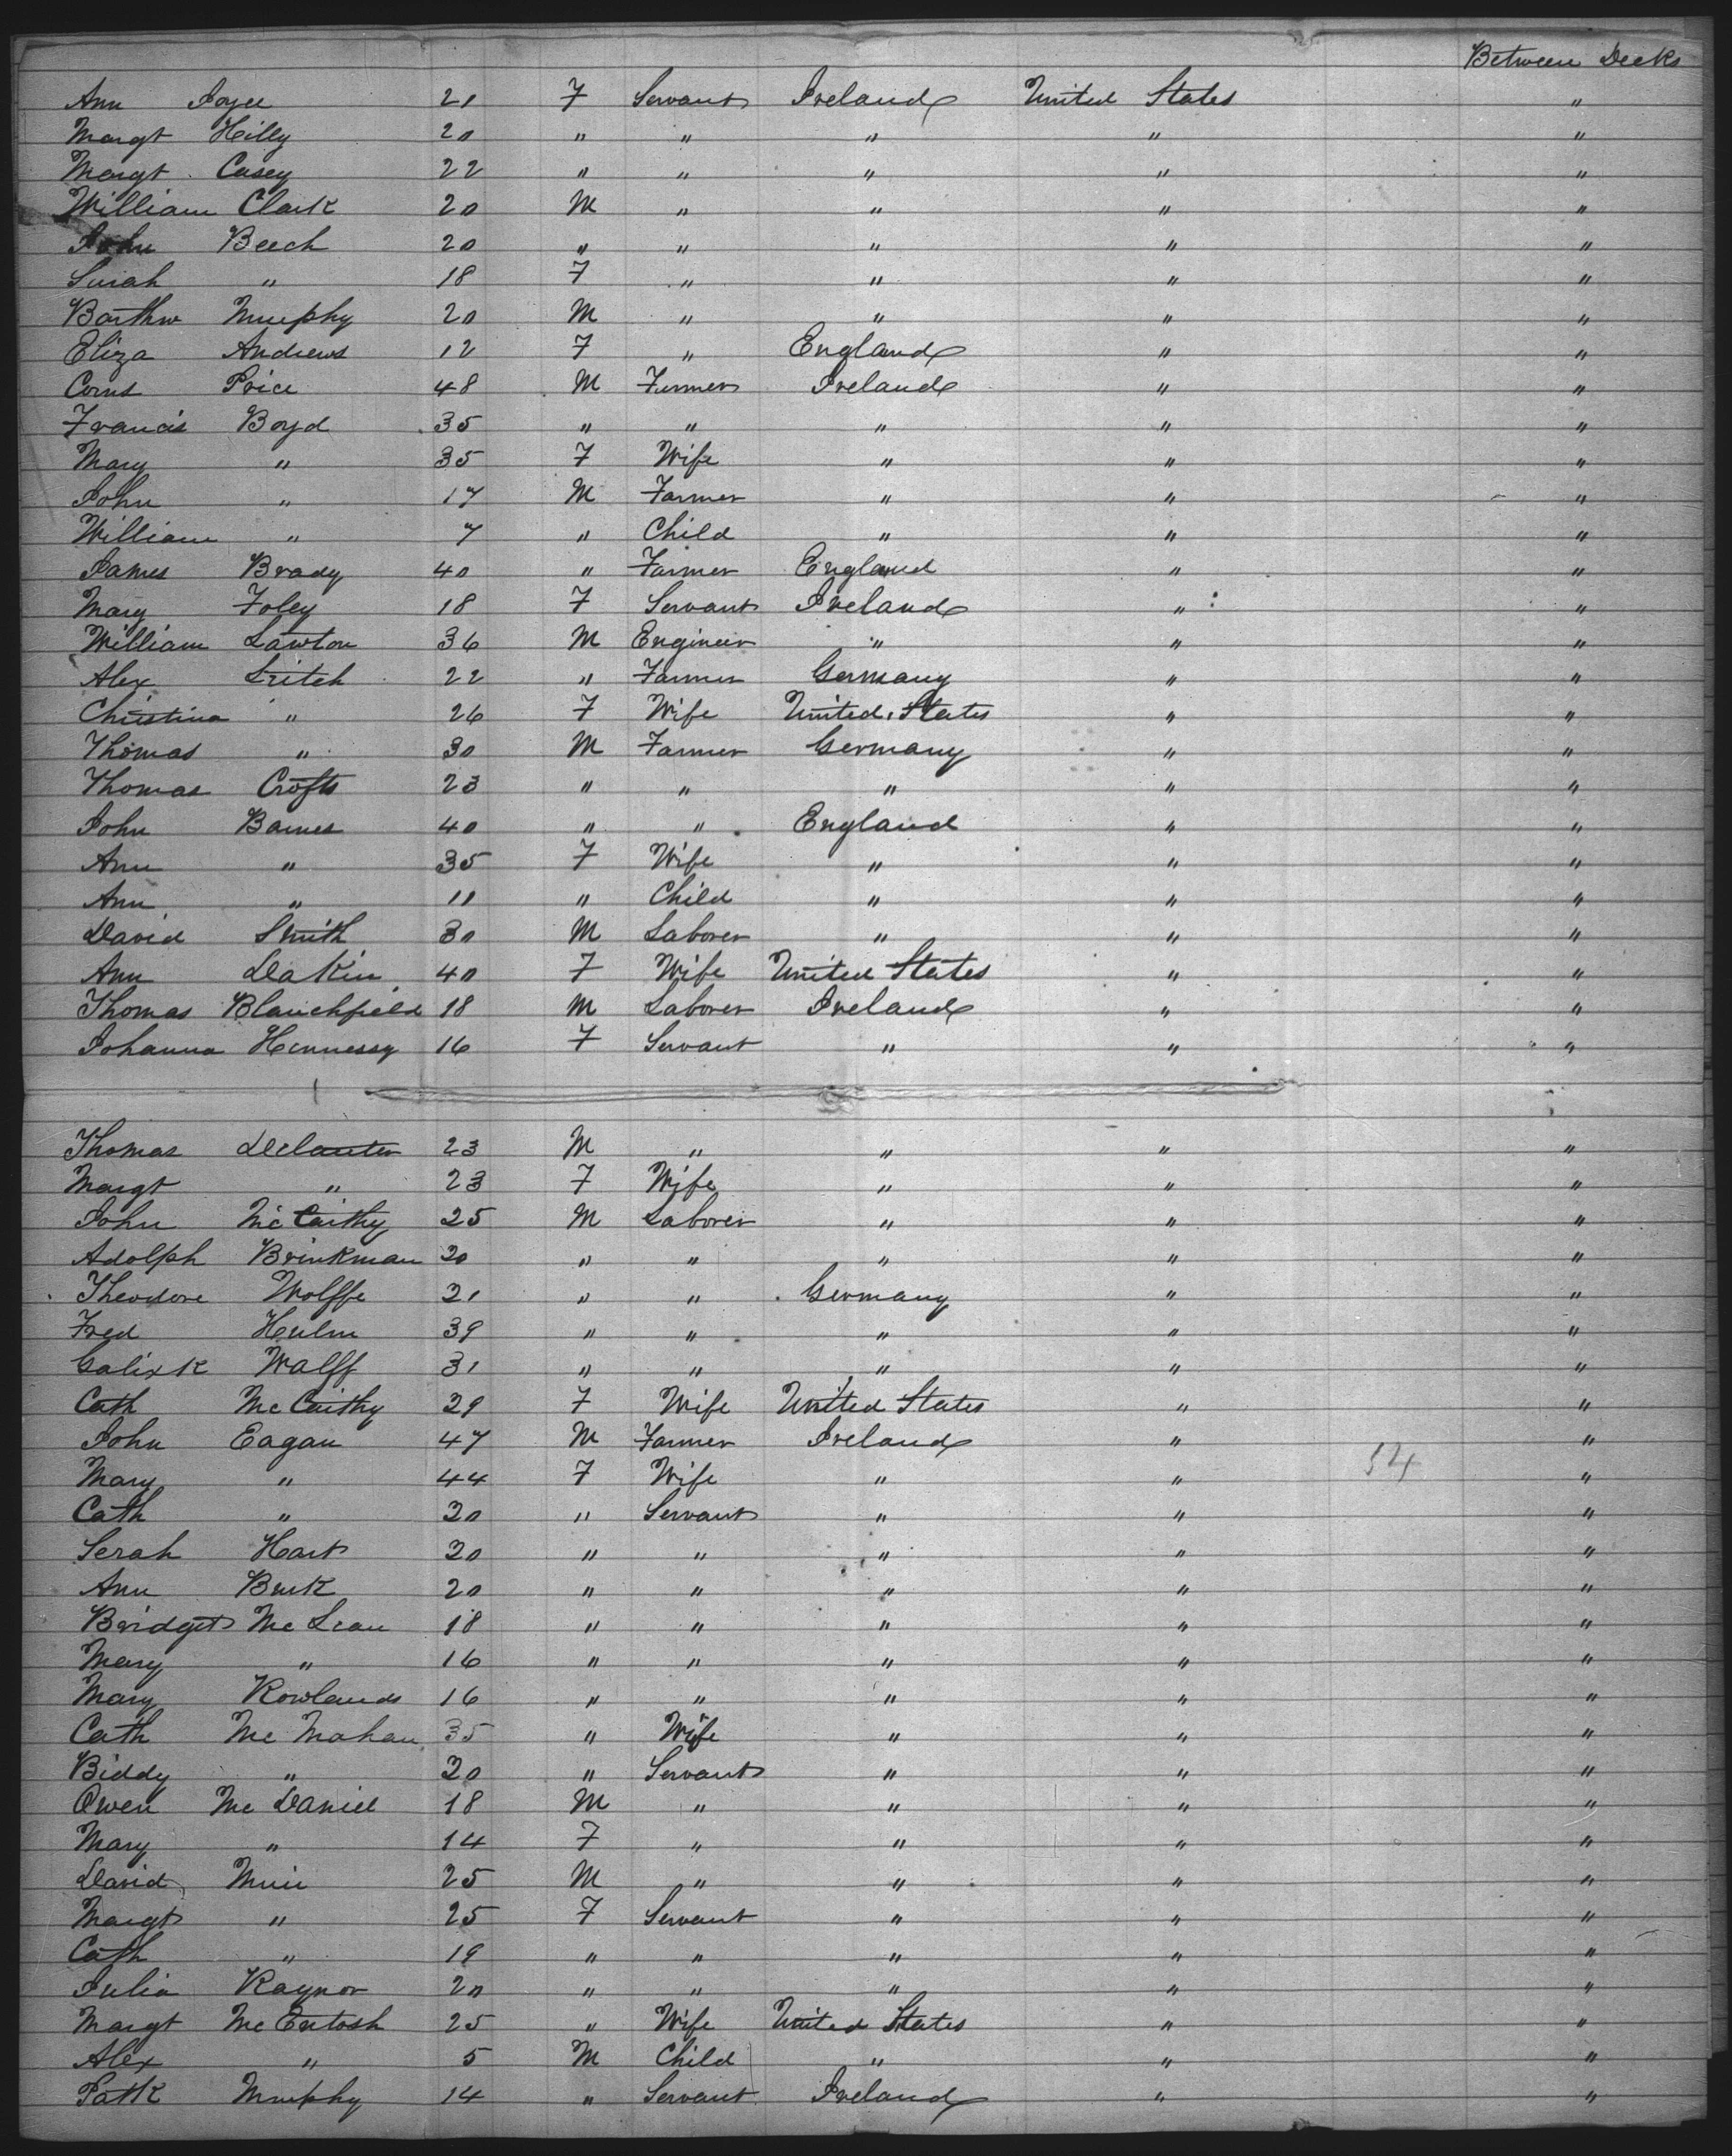 Between Decks
Ann Joyce 21 F Servant Ireland United States "
Margt Hilly 20 " " " " "
Margt Casey 22 " " " " "
William Clark 20 M " " " "
John Beech 20 " " " " "
Sarah " 18 F " " " "
Barthw Murphy 20 M " " " "
Eliza Andrews 12 F " England " "
Corns Price 48 M Farmer Ireland " "
Francis Boyd 35 " " " " "
Mary " 35 F Wife " " "
John " 17 M Farmer " " "
William " 7 " Child " " "
James Brady 40 " Farmer England " "
Mary Foley 18 F Servant Ireland " "
William Lawton 36 M Engineer " " "
Alex Lritch 22 " Farmer Germany " "
Christina " 26 F Wife United States " "
Thomas " 30 M Farmer Germany " "
Thomas Crofts 23 " " " " "
John Barnes 40 " " England " "
Ann " 35 F Wife " " "
Ann " 11 " Child " " "
David Smith 30 M Laborer " " "
Ann Dakin 40 F Wife United States " "
Thomas Blanchfield 18 M Laborer Ireland " "
Johanna Hennessy 16 F Servant " " "
Thomas 23 M " " " "
Margt " 23 F Wife " " "
John McCarthy 25 M Laborer " " "
Adolph Brinkman 20 " " " " "
Theodore Wolffe 21 " " Germany " "
Fred Hulm 39 " " " " "
Walff 31 " " " " "
Cath McCarthy 29 F Wife United States " "
John Eagan 47 M Farmer Ireland " "
Mary " 44 F Wife " " 54 "
Cath " 20 " Servant " " "
Serah Hart 20 " " " " "
Ann Burk 20 " " " " "
Bridget McLean 18 " " " " "
Mary " 16 " " " " "
Mary Rowlands 16 " " " " "
Cath McMahan 35 " Wife " " "
Biddy " 20 " Servant " " "
Owen McDaniel 18 M " " " "
Mary " 14 F " " " "
David Muir 25 M " " " "
Margt " 25 F Servant " " "
Cath " 19 " " " " "
Julia Raynor 20 " " " " "
Margt McEntosh 25 " Wife United States " "
Alex " 5 M Child " " "
Patk Murphy 14 " Servant Ireland " "